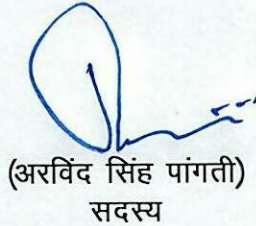 (अरविंद सिंह पांगती)
सदस्य